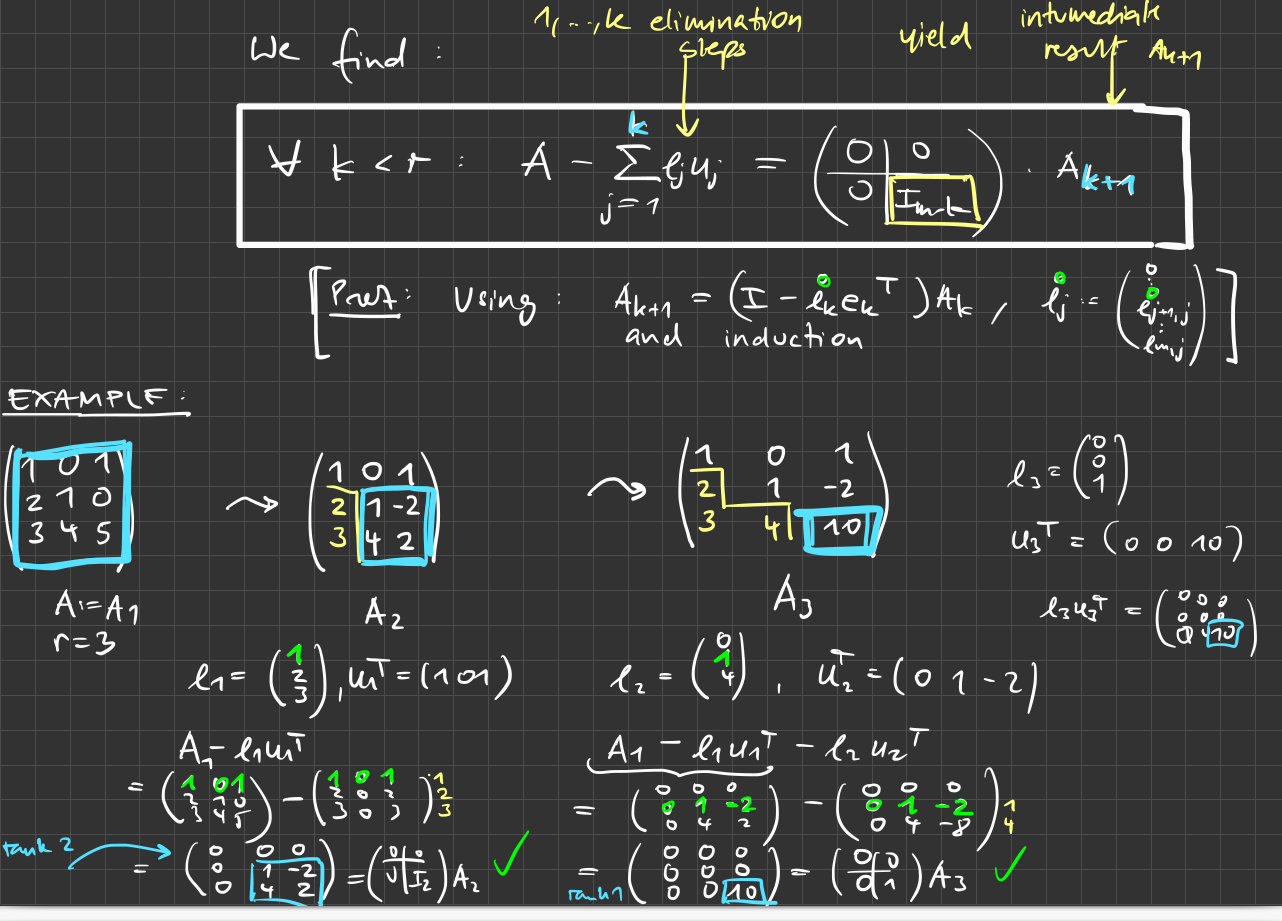 1,...,k elimination steps
yield
intermediate result A_{k+1}
We find :
∀ k < r : A - \sum_{j=1}^{k} ℓ_j u_j = \begin{pmatrix} 0 & 0 \\ 0 & I_{m-k} \end{pmatrix} · A_{k+1}
[Proof: Using : A_{k+1} = (I - \mathring{ℓ}_k e_k^T) A_k , \mathring{ℓ}_j := \begin{pmatrix} 0 \\ ⋮ \\ 0 \\ ℓ_{j+1,j} \\ ⋮ \\ ℓ_{m,j} \end{pmatrix}]
and induction
EXAMPLE :
\begin{pmatrix} 1 & 0 & 1 \\ 2 & 1 & 0 \\ 3 & 4 & 5 \end{pmatrix} ⇝ \begin{pmatrix} 1 & 0 & 1 \\ 2 & 1 & -2 \\ 3 & 4 & 2 \end{pmatrix} ⇝ \begin{pmatrix} 1 & 0 & 1 \\ 2 & 1 & -2 \\ 3 & 4 & 10 \end{pmatrix}
ℓ_3 = \begin{pmatrix} 0 \\ 0 \\ 1 \end{pmatrix}
u_3^T = (0 0 10)
A := A_1
r = 3
A_2
A_3
ℓ_3 u_3^T = \begin{pmatrix} 0 & 0 & 0 \\ 0 & 0 & 0 \\ 0 & 0 & 10 \end{pmatrix}
ℓ_1 = \begin{pmatrix} 1 \\ 2 \\ 3 \end{pmatrix}, u_1^T = (1 0 1)
ℓ_2 = \begin{pmatrix} 0 \\ 1 \\ 4 \end{pmatrix}, u_2^T = (0 1 -2)
A_1 - ℓ_1 u_1^T
= \begin{pmatrix} 1 & 0 & 1 \\ 2 & 1 & 0 \\ 3 & 4 & 5 \end{pmatrix} - \begin{pmatrix} 1 & 0 & 1 \\ 2 & 0 & 2 \\ 3 & 0 & 3 \end{pmatrix} ·1 2 3
rank 2
= \begin{pmatrix} 0 & 0 & 0 \\ 0 & 1 & -2 \\ 0 & 4 & 2 \end{pmatrix} = \begin{pmatrix} 0 & 0 \\ 0 & I_2 \end{pmatrix} A_2 ✓
A_1 - ℓ_1 u_1^T - ℓ_2 u_2^T
= \begin{pmatrix} 0 & 0 & 0 \\ 0 & 1 & -2 \\ 0 & 4 & 2 \end{pmatrix} - \begin{pmatrix} 0 & 0 & 0 \\ 0 & 1 & -2 \\ 0 & 4 & -8 \end{pmatrix} 1 4
rank 1
= \begin{pmatrix} 0 & 0 & 0 \\ 0 & 0 & 0 \\ 0 & 0 & 10 \end{pmatrix} = \begin{pmatrix} 0 & 0 \\ 0 & 1 \end{pmatrix} A_3 ✓